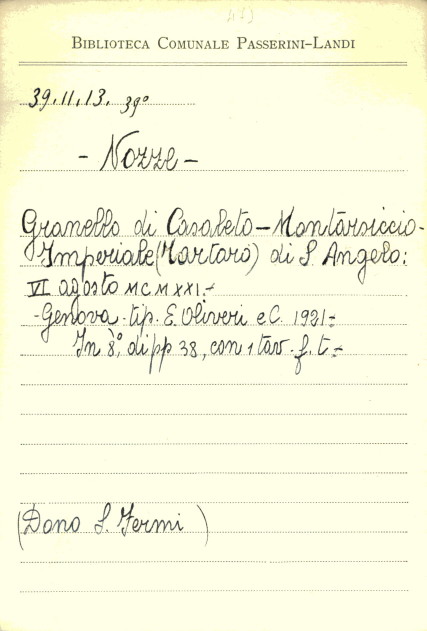 473
BIBLIOTECA COMUNALE PASSERINI-LANDI
39.11.13. 39º
- Nozze -
Granello di Casaleto - Montarsiccio -
Imperiale (Martaro) di S. Angelo:
VI agosto MCMXXI.-
- Genova - tip. E. Oliveri e C. 1921 :-
In 8º, di pp 38, con 1 tav. f. t :-
(Dono S. Fermi)